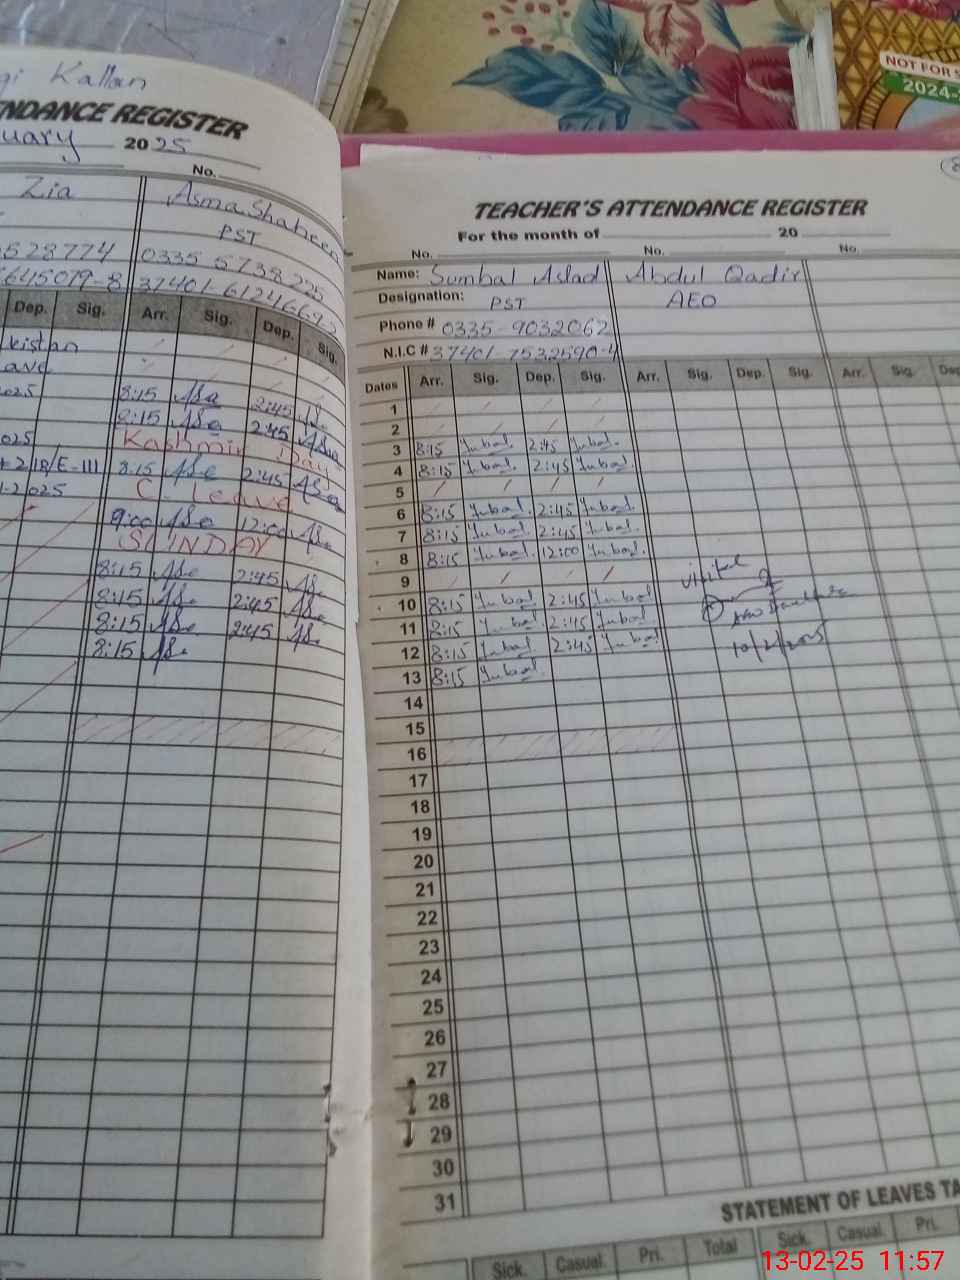 gi Kallan
NDANCE REGISTER
uary 2025
No.
Zia Asma Shaheen
PST
5528774 0335 5738225
6645079-8 37401-6124669-
Dep. Sig. Arr. Sig. Dep. Sig.
kistan
ave
025 8:15 2:45
8:15 2:45
025 Kashmir Day
8:15 2:45
2025 C. Leave
9:00 12:00
SUNDAY
8:15 2:45
8:15 2:45
8:15 2:45
8:15
NOT FOR S
2024-
TEACHER'S ATTENDANCE REGISTER
For the month of 20
No. No. No.
Name: Sumbal Aslad Abdul Qadir
Designation: PST AEO
Phone # 0335-9032062
N.I.C # 37401-7532590-4
Dates Arr. Sig. Dep. Sig. Arr. Sig. Dep. Sig. Arr. Sig. Dep
1
2
3 8:15 2:45
4 8:15 2:45
5
6 8:15 2:45
7 8:15 2:45
8 8:15 12:00
9
visited
10 8:15 2:45
11 8:15 2:45
12 8:15 2:45 10/2/2025
13 8:15
14
15
16
17
18
19
20
21
22
23
24
25
26
27
28
29
30
31
STATEMENT OF LEAVES TA
Sick. Casual. Pri. Total Sick. Casual. Pri.
13-02-25 11:57